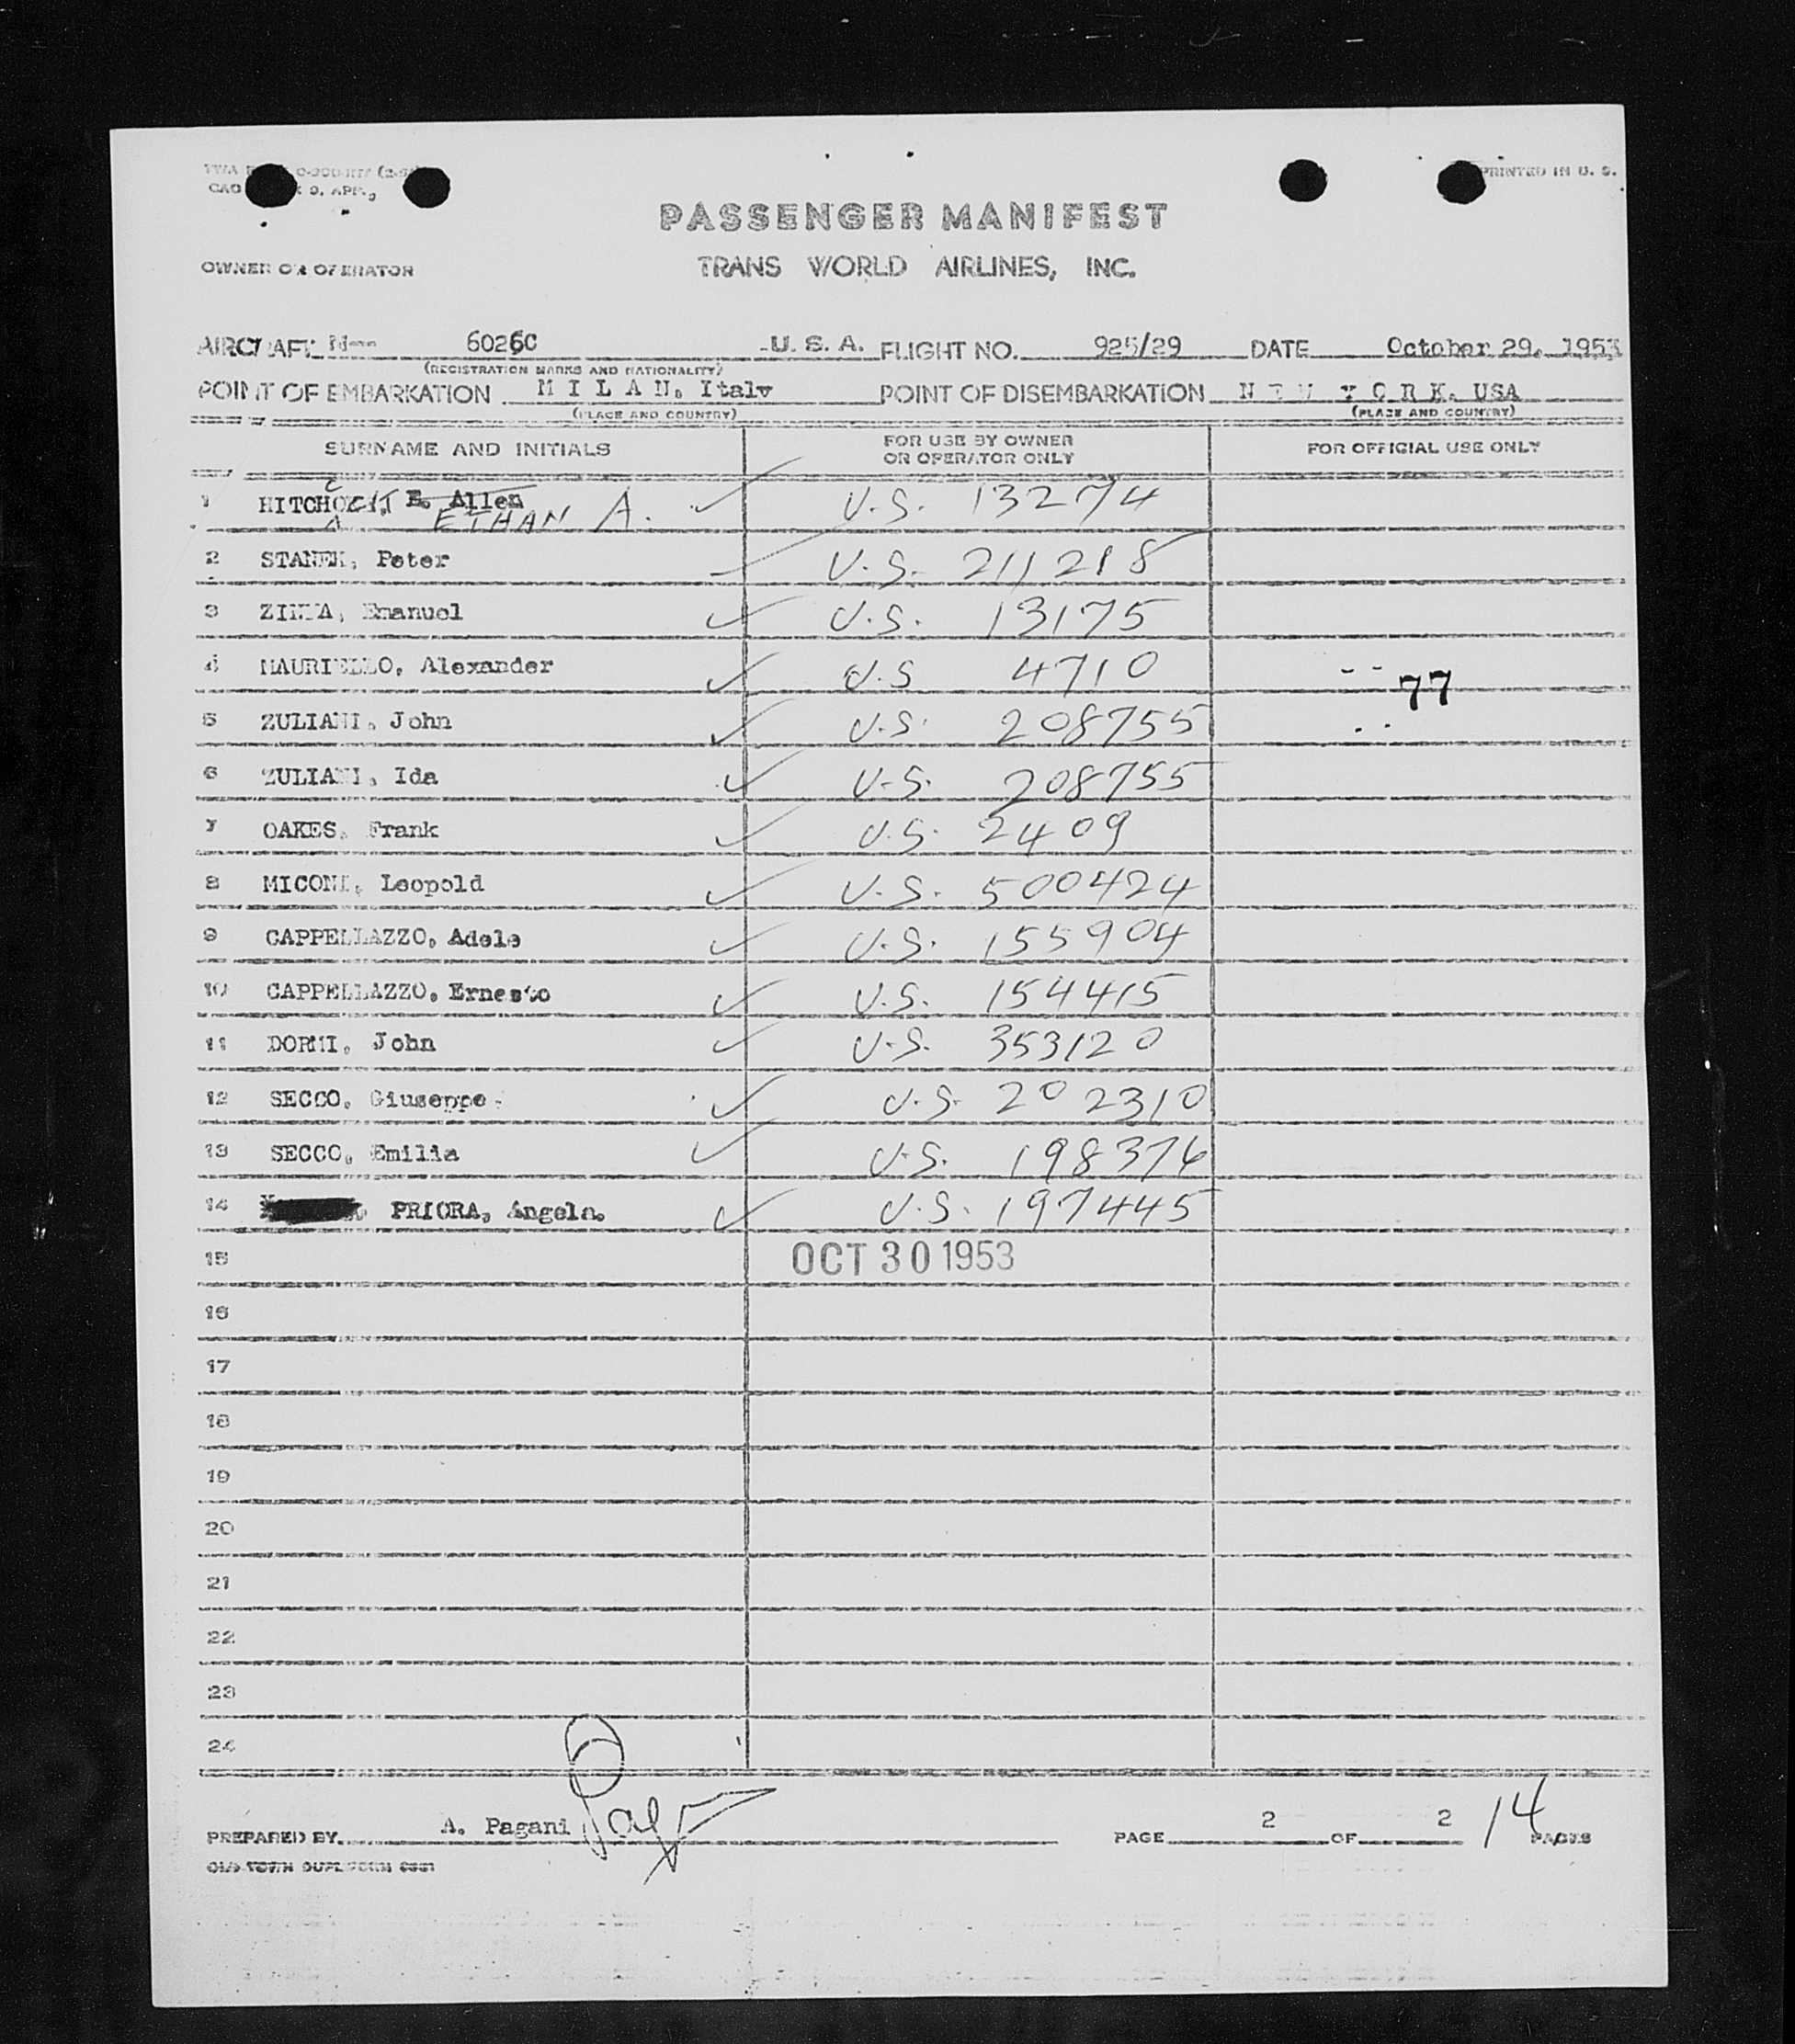 PRINTED IN U. S.
PASSENGER MANIFEST
OWNER OR OPERATOR
TRANS WORLD AIRLINES, INC.
AIRCRAFT N--- 6026C U. S. A. FLIGHT NO. 925/29 DATE October 29, 1953
(REGISTRATION MARKS AND NATIONALITY)
POINT OF EMBARKATION M I L A N, Italy POINT OF DISEMBARKATION N E W Y O R K, USA
(PLACE AND COUNTRY) (PLACE AND COUNTRY)
SURNAME AND INITIALS FOR USE BY OWNER OR OPERATOR ONLY FOR OFFICIAL USE ONLY
1 HITCHCOCK, E. Allen ETHAN A. U.S. 13274
2 STANEK, Peter U.S. 211218
3 Emanuel U.S. 13175
4 MAURIELLO, Alexander U.S 4710
77
5 ZULIANI, John U.S. 208755
6 ZULIANI, Ida U.S. 208755
7 OAKES, Frank U.S. 2409
8 MICONI, Leopold U.S. 500424
9 CAPPELLAZZO, Adele U.S. 155904
10 CAPPELLAZZO, Ernesto U.S. 154415
11 DORMI, John U.S. 353120
12 SECCO, Giuseppe U.S. 202310
13 SECCO, Emilia U.S. 198376
14 PRIORA, Angela. U.S. 197445
15 OCT 30 1953
16
17
18
19
20
21
22
23
24
PREPARED BY A. Pagani PAGE 2 OF 2 PAGES 14